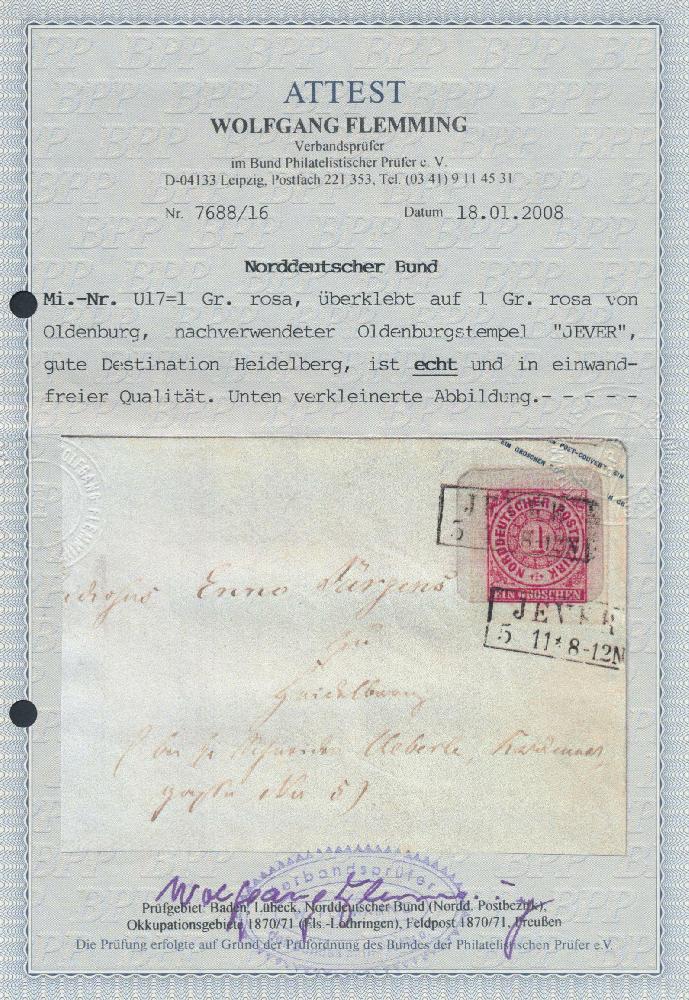 ATTEST
WOLFGANG FLEMMING
Verbandsprüfer
im Bund Philatelistischer Prüfer e. V.
D-04133 Leipzig, Postfach 221 353, Tel. (03 41) 9 11 45 31
Nr. 7688/16 Datum 18.01.2008
Norddeutscher Bund
Mi.-Nr. U17=1 Gr. rosa, überklebt auf 1 Gr. rosa von
Oldenburg, nachverwendeter Oldenburgstempel "JEVER",
gute Destination Heidelberg, ist echt und in einwand-
freier Qualität. Unten verkleinerte Abbildung.- - - - -
EIN GROSCHEN
POST-COUVERT
NORDDEUTSCHER POSTBEZIRK
1
EIN GROSCHEN
JEVER
5 11* 8-12N
Enno Jürgens
zu
Heidelberg
Ueberle,
5)
Verbandsprüfer
Wolfgang Flemming
Prüfgebiet: Baden, Lübeck, Norddeutscher Bund (Nordd. Postbezirk),
Okkupationsgebiete 1870/71 (Els.-Lothringen), Feldpost 1870/71, Preußen
Die Prüfung erfolgte auf Grund der Prüfordnung des Bundes der Philatelistischen Prüfer e.V.